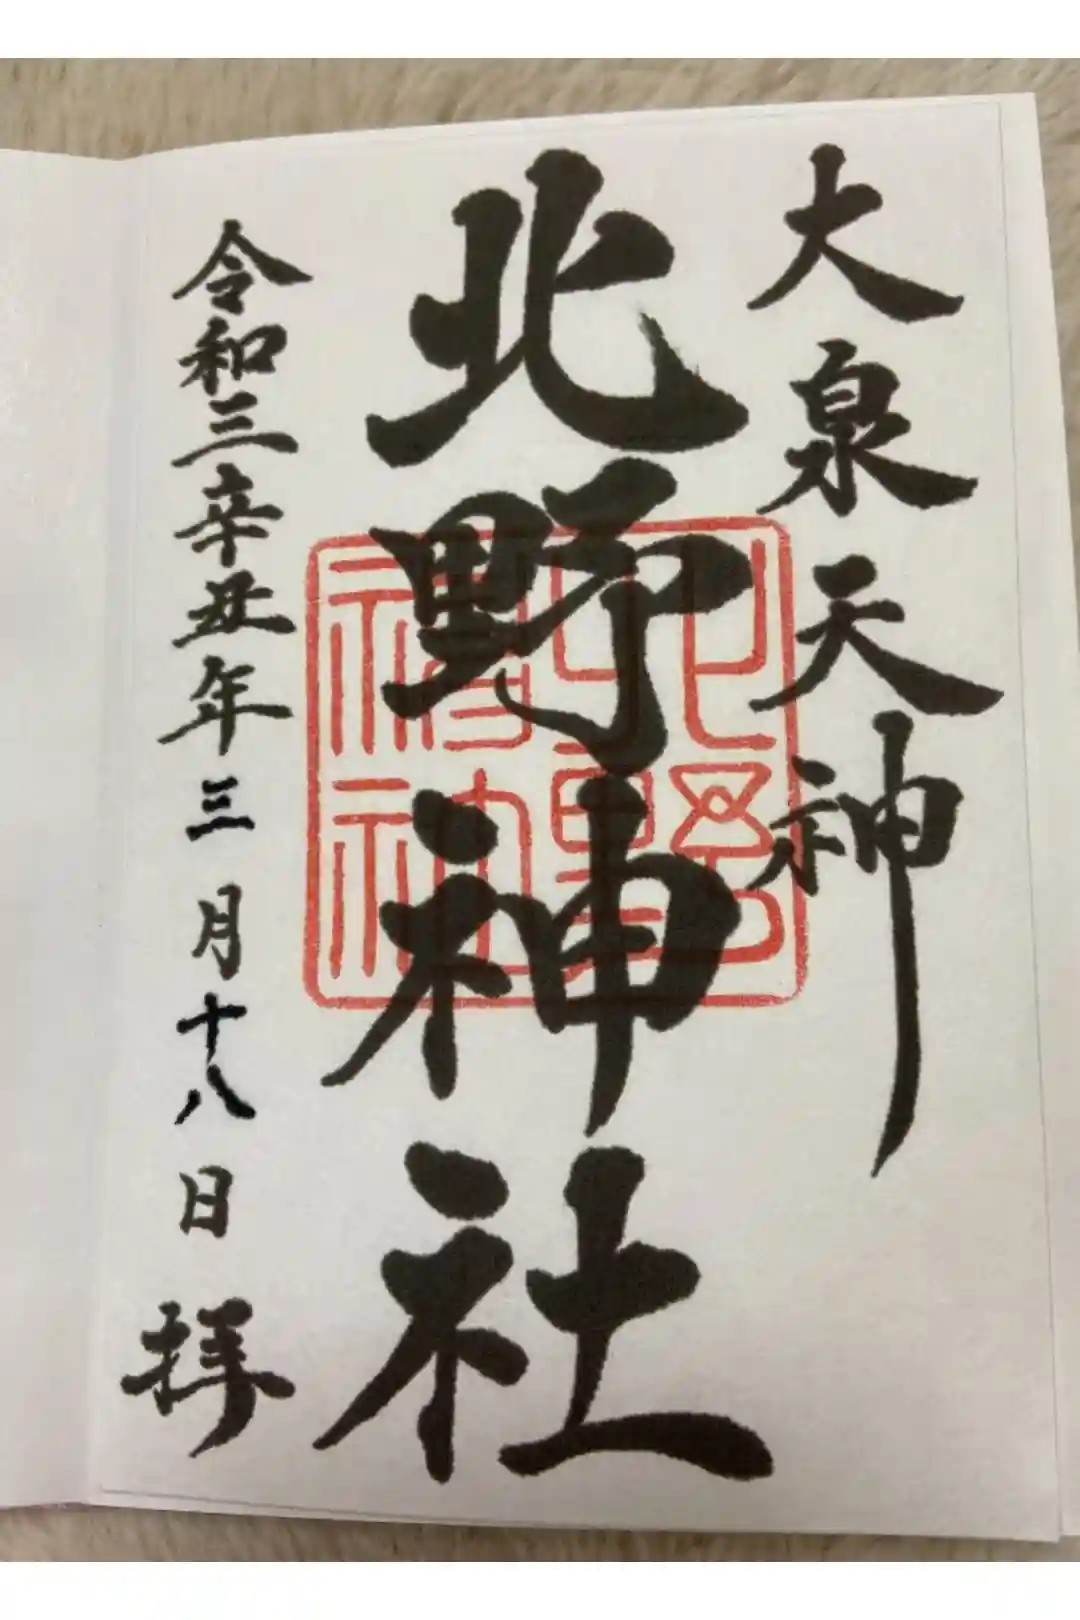 大泉天神
北野神社
北野神社
令和三辛丑年三月十八日 拝